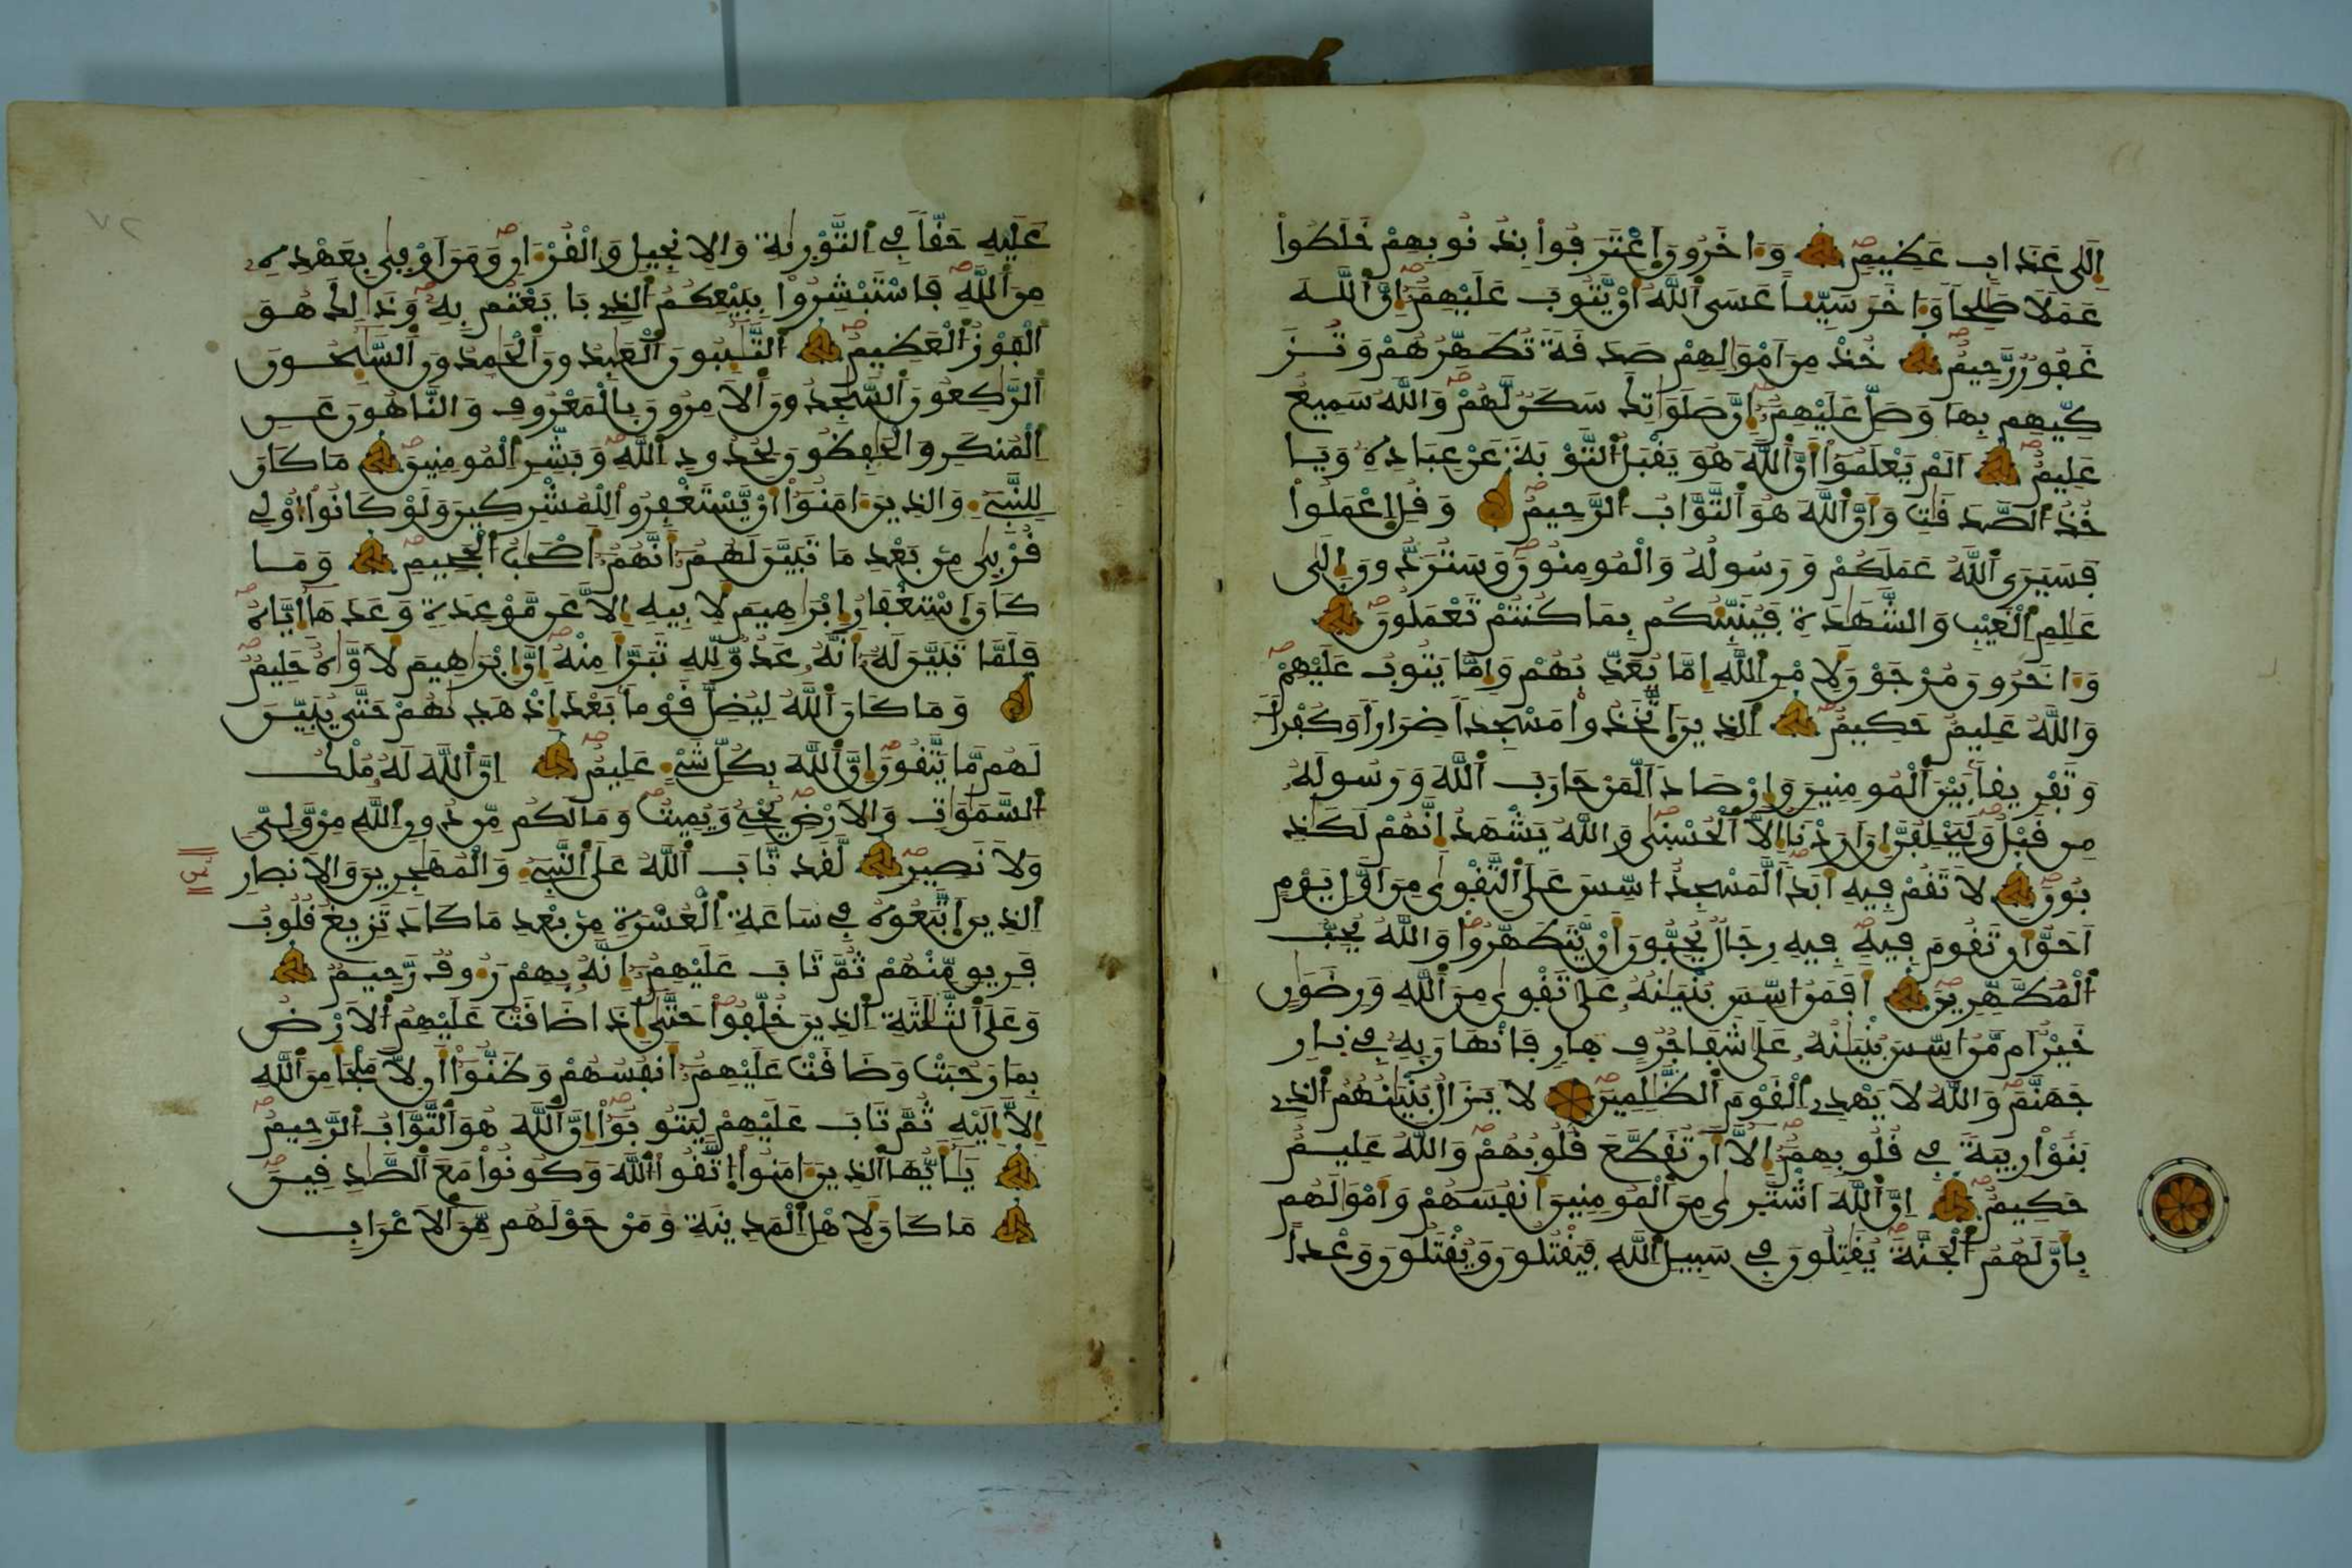 إِلَىٰ عَذَابٍ عَظِيمٍ وَءَاخَرُونَ اَعْتَرَفُواْ بِذُنُوبِهِمْ خَلَطُواْ
عَمَلًا صَٰلِحاً وَءَاخَرَ سَيِّئاً عَسَى اَللَّهُ أَنْ يَّتُوبَ عَلَيْهِمُۥٓ إِنَّ اَللَّهَ
غَفُورٌ رَّحِيمٌ خُذْ مِنَ اَمْوَٰلِهِمْ صَدَقَةً تُطَهِّرُهُمْ وَتُزَ
كِّيهِم بِهَا وَصَلِّ عَلَيْهِمُۥٓ إِنَّ صَلَوَٰتِكَ سَكَنٌ لَّهُمْ وَاللَّهُ سَمِيعٌ
عَلِيمٌ اَلَمْ يَعْلَمُوٓاْ أَنَّ اَللَّهَ هُوَ يَقْبَلُ اَلتَّوْبَةَ عَنْ عِبَادِهِۦ وَيَا
خُذُ اُلصَّدَقَٰتِ وَأَنَّ اَللَّهَ هُوَ اَلتَّوَّابُ اُلرَّحِيمُ وَقُلِ اِعْمَلُواْ
فَسَيَرَى اَللَّهُ عَمَلَكُمْ وَرَسُولُهُۥ وَالْمُومِنُونَ وَسَتُرَدُّونَ إِلَىٰ
عَٰلِمِ اِلْغَيْبِ وَالشَّهَٰدَةِ فَيُنَبِّئُكُم بِمَا كُنتُمْ تَعْمَلُونَ
وَءَاخَرُونَ مُرْجَوْنَ لِأَمْرِ اِللَّهِ إِمَّا يُعَذِّبُهُمْ وَإِمَّا يَتُوبُ عَلَيْهِمْ
وَاللَّهُ عَلِيمٌ حَكِيمٌ اَلذِينَ اَتَّخَذُواْ مَسْجِداً ضِرَاراً وَكُفْراً
وَتَفْرِيقاً بَيْنَ اَلْمُومِنِينَ وَإِرْصَاداً لِّمَنْ حَارَبَ اَللَّهَ وَرَسُولَهُۥ
مِن قَبْلُ وَلَيَحْلِفُنَّ إِنَ اَرَدْنَآ إِلَّا اَلْحُسْنَىٰ وَاللَّهُ يَشْهَدُ إِنَّهُمْ لَكَٰذِ
بُونَ لَا تَقُمْ فِيهِ أَبَداً لَّمَسْجِدٌ اسِّسَ عَلَى اَلتَّقْوَىٰ مِنَ اَوَّلِ يَوْمٍ
اَحَقُّ أَن تَقُومَ فِيهِ فِيهِ رِجَالٌ يُحِبُّونَ أَنْ يَّتَطَهَّرُواْ وَاللَّهُ يُحِبُّ
اُلْمُطَّهِّرِينَ أَفَمَنُ اسِّسَ بُنْيَٰنُهُۥ عَلَىٰ تَقْوَىٰ مِنَ اَللَّهِ وَرِضْوَٰنٍ
خَيْرٌ اَم مَّنُ اسِّسَ بُنْيَٰنُهُۥ عَلَىٰ شَفَا جُرُفٍ هَارٍ فَانْهَارَ بِهِۦ فِي نَارِ
جَهَنَّمَ وَاللَّهُ لَا يَهْدِي اِلْقَوْمَ اَلظَّٰلِمِينَ لَا يَزَالُ بُنْيَٰنُهُمُ اُلذِي
بَنَوْاْ رِيبَةً فِي قُلُوبِهِمُۥٓ إِلَّآ أَن تُقَطَّعَ قُلُوبُهُمْ وَاللَّهُ عَلِيمٌ
حَكِيمٌ إِنَّ اَللَّهَ اَشْتَرَىٰ مِنَ اَلْمُومِنِينَ أَنفُسَهُمْ وَأَمْوَٰلَهُم
بِأَنَّ لَهُمُ اُلْجَنَّةَ يُقَٰتِلُونَ فِي سَبِيلِ اِللَّهِ فَيَقْتُلُونَ وَيُقْتَلُونَ وَعْداً
عَلَيْهِ حَقّاً فِي اِلتَّوْرَىٰةِ وَالِانجِيلِ وَالْقُرْءَانِ وَمَنَ اَوْفَىٰ بِعَهْدِهِۦ
مِنَ اَللَّهِ فَاسْتَبْشِرُواْ بِبَيْعِكُمُ اُلذِي بَايَعْتُم بِهِۦ وَذَٰلِكَ هُوَ
اَلْفَوْزُ اُلْعَظِيمُ اُلتَّٰٓئِبُونَ اَلْعَٰبِدُونَ اَلْحَٰمِدُونَ اَلسَّٰٓئِحُونَ
اَلرَّٰكِعُونَ اَلسَّٰجِدُونَ اَلَامِرُونَ بِالْمَعْرُوفِ وَالنَّاهُونَ عَنِ
اِلْمُنكَرِ وَالْحَٰفِظُونَ لِحُدُودِ اِللَّهِ وَبَشِّرِ اِلْمُومِنِينَ مَا كَانَ
لِلنَّبِيٓءِ وَالذِينَ ءَامَنُوٓاْ أَنْ يَّسْتَغْفِرُواْ لِلْمُشْرِكِينَ وَلَوْ كَانُوٓاْ أُوْلِي
قُرْبَىٰ مِنۢ بَعْدِ مَا تَبَيَّنَ لَهُمُۥٓ أَنَّهُمُۥٓ أَصْحَٰبُ اُلْجَحِيمِ وَمَا
كَانَ اَسْتِغْفَارُ إِبْرَٰهِيمَ لِأَبِيهِ إِلَّا عَن مَّوْعِدَةٍ وَعَدَهَآ إِيَّاهُ
فَلَمَّا تَبَيَّنَ لَهُۥٓ أَنَّهُۥ عَدُوٌّ لِّلهِ تَبَرَّأَ مِنْهُ إِنَّ إِبْرَٰهِيمَ لَأَوَّٰهٌ حَلِيمٌ
وَمَا كَانَ اَللَّهُ لِيُضِلَّ قَوْماً بَعْدَ إِذْ هَدَىٰهُمْ حَتَّىٰ يُبَيِّنَ
لَهُم مَّا يَتَّقُونَ إِنَّ اَللَّهَ بِكُلِّ شَيْءٍ عَلِيمٌ إِنَّ اَللَّهَ لَهُۥ مُلْكُ
اُلسَّمَٰوَٰتِ وَالَارْضِ يُحْيِۦ وَيُمِيتُ وَمَا لَكُم مِّن دُونِ اِللَّهِ مِنْ وَّلِيٍّ
وَلَا نَصِيرٍ لَّقَد تَّابَ اَللَّهُ عَلَى اَلنَّبِيٓءِ وَالْمُهَٰجِرِينَ وَالَانصَارِ
اِلذِينَ اَتَّبَعُوهُ فِي سَاعَةِ اِلْعُسْرَةِ مِنۢ بَعْدِ مَا كَادَ تَزِيغُ قُلُوبُ
فَرِيقٍ مِّنْهُمْ ثُمَّ تَابَ عَلَيْهِمُۥٓ إِنَّهُۥ بِهِمْ رَءُوفٌ رَّحِيمٌ
وَعَلَى اَلثَّلَٰثَةِ اِلذِينَ خُلِّفُواْ حَتَّىٰٓ إِذَا ضَاقَتْ عَلَيْهِمُ اُلَارْضُ
بِمَا رَحُبَتْ وَضَاقَتْ عَلَيْهِمُۥٓ أَنفُسُهُمْ وَظَنُّوٓاْ أَن لَّا مَلْجَأَ مِنَ اَللَّهِ
إِلَّآ إِلَيْهِ ثُمَّ تَابَ عَلَيْهِمْ لِيَتُوبُوٓاْ إِنَّ اَللَّهَ هُوَ اَلتَّوَّابُ اُلرَّحِيمُ
يَٰٓأَيُّهَا اَلذِينَ ءَامَنُواْ اُتَّقُواْ اُللَّهَ وَكُونُواْ مَعَ اَلصَّٰدِقِينَ
مَا كَانَ لِأَهْلِ اِلْمَدِينَةِ وَمَنْ حَوْلَهُم مِّنَ اَلَاعْرَابِ